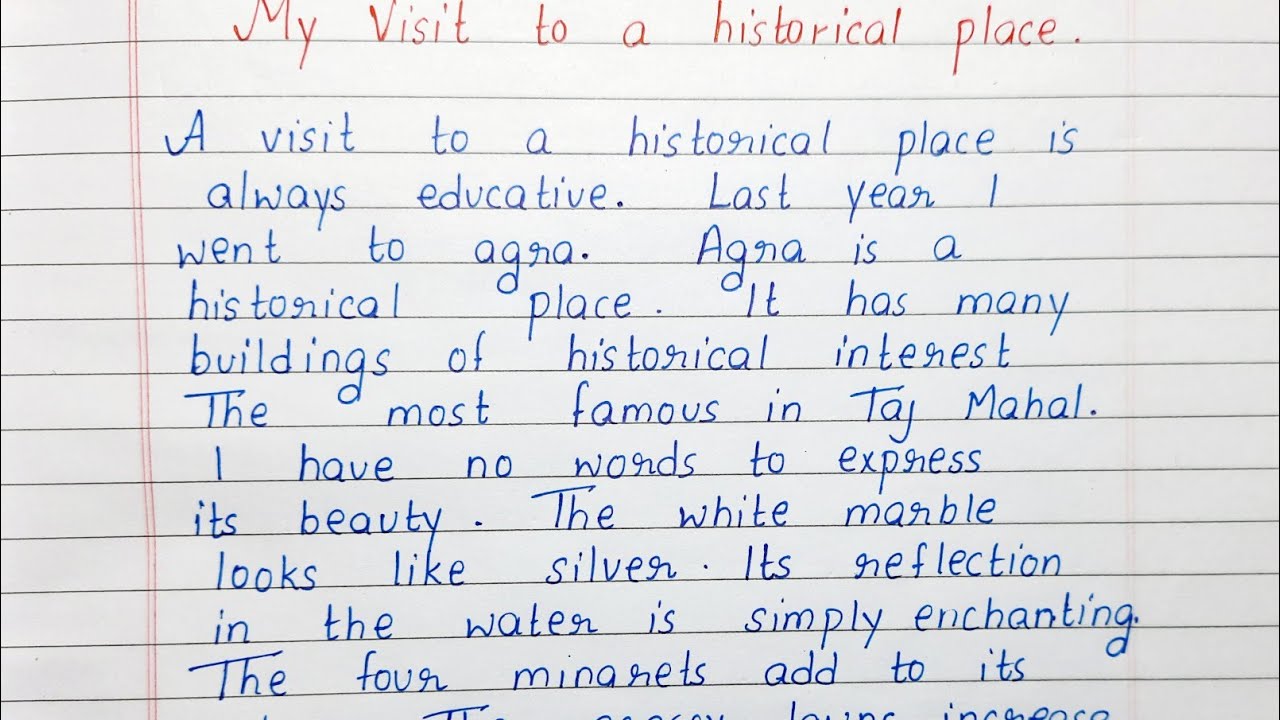 My Visit to a historical place.
A visit to a historical place is
always educative. Last year I
went to agra. Agra is a
historical place. It has many
buildings of historical interest
The most famous in Taj Mahal.
I have no words to express
its beauty. The white marble
looks like silver. Its reflection
in the water is simply enchanting.
The four minarets add to its
The increase